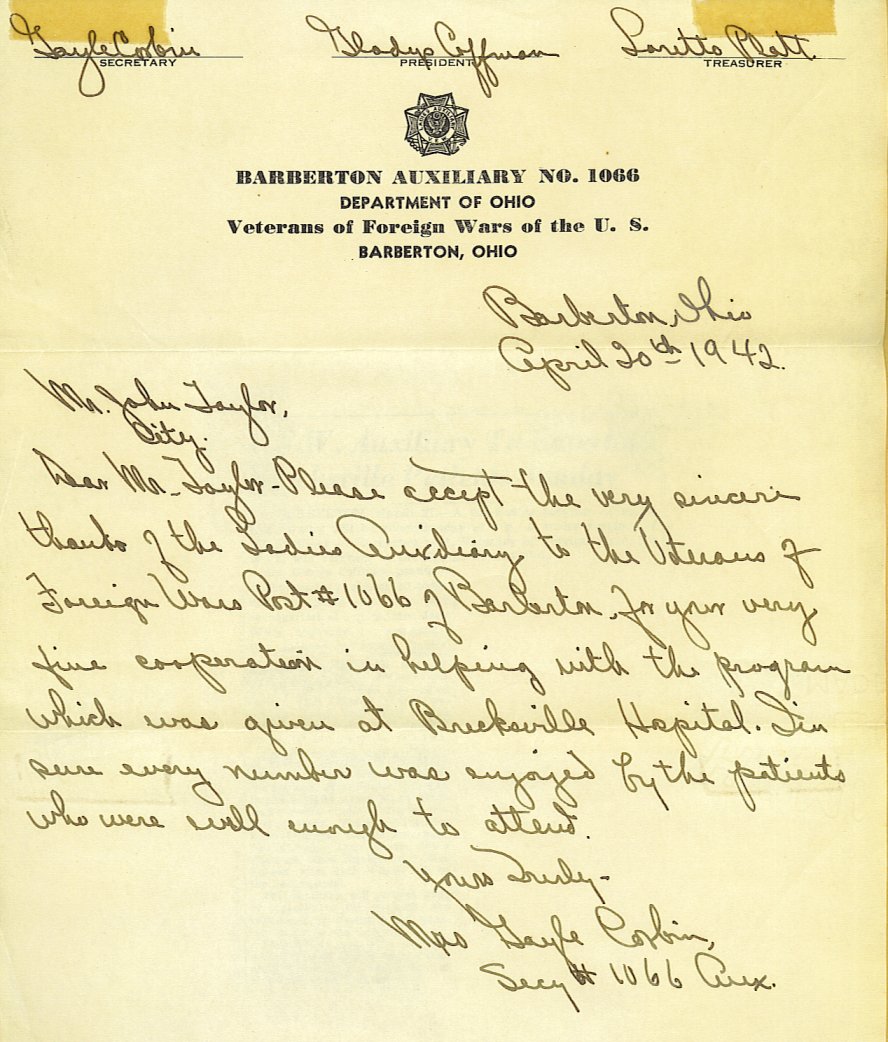 Gayle Corbin Gladys Coffman Loretto Platt.
SECRETARY PRESIDENT TREASURER
BARBERTON AUXILIARY NO. 1066
DEPARTMENT OF OHIO
Veterans of Foreign Wars of the U. S.
BARBERTON, OHIO
Barberton, Ohio
April 20th 1942.
Mr. John Taylor,
City.
Dear Mr. Taylor - Please accept the very sincere
thanks of the Ladies Auxiliary to the Veterans of
Foreign Wars Post # 1066 of Barberton, for your very
fine cooperation in helping with the program
which was given at Brecksville Hospital. I'm
sure every number was enjoyed by the patients
who were well enough to attend.
Yours Truly -
Mrs Gayle Corbin,
Secy # 1066 Aux.